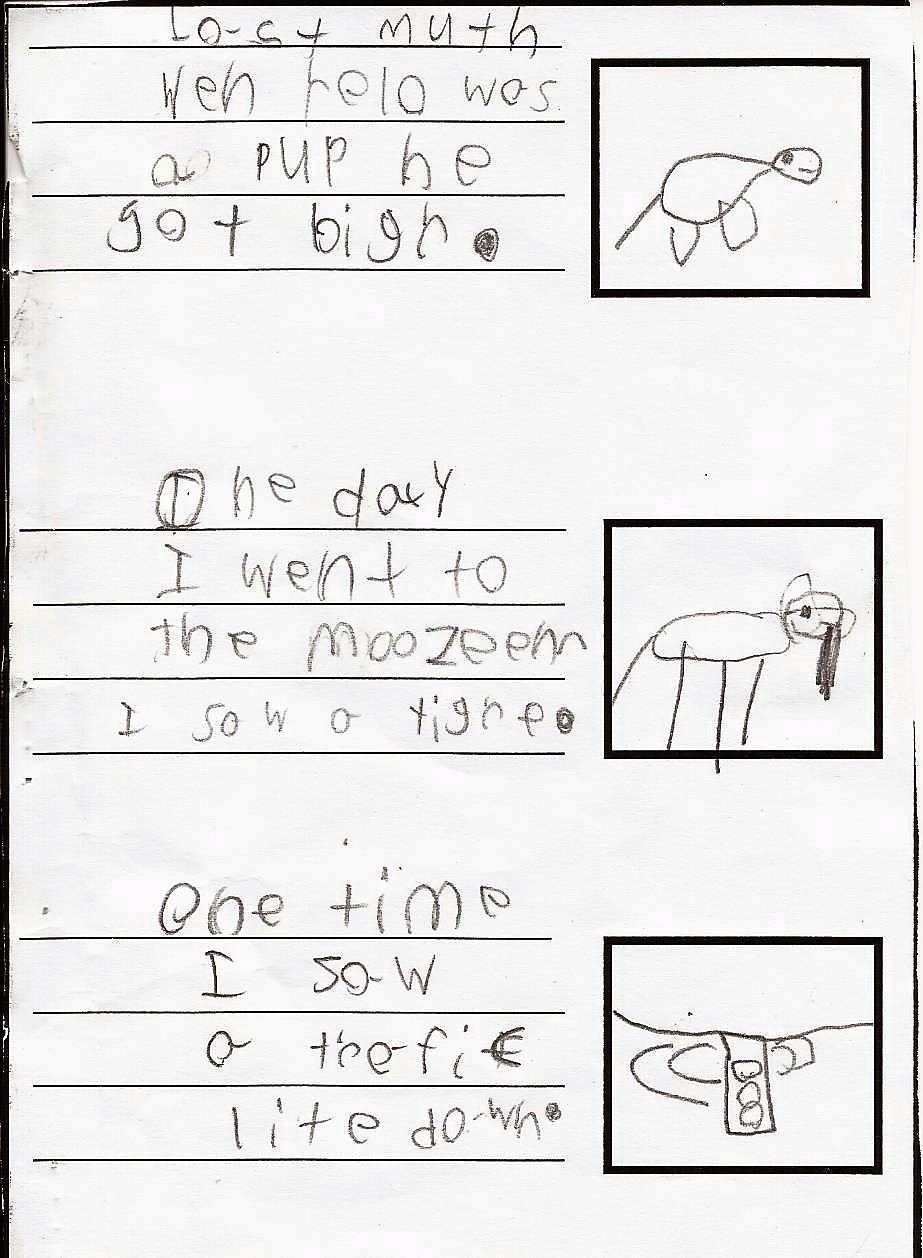 Last muth
Wen relo was
a pup he
got bigr.
One day
I went to
the moozeem
I saw a tigre.
One time
I saw
a trafic
lite down.